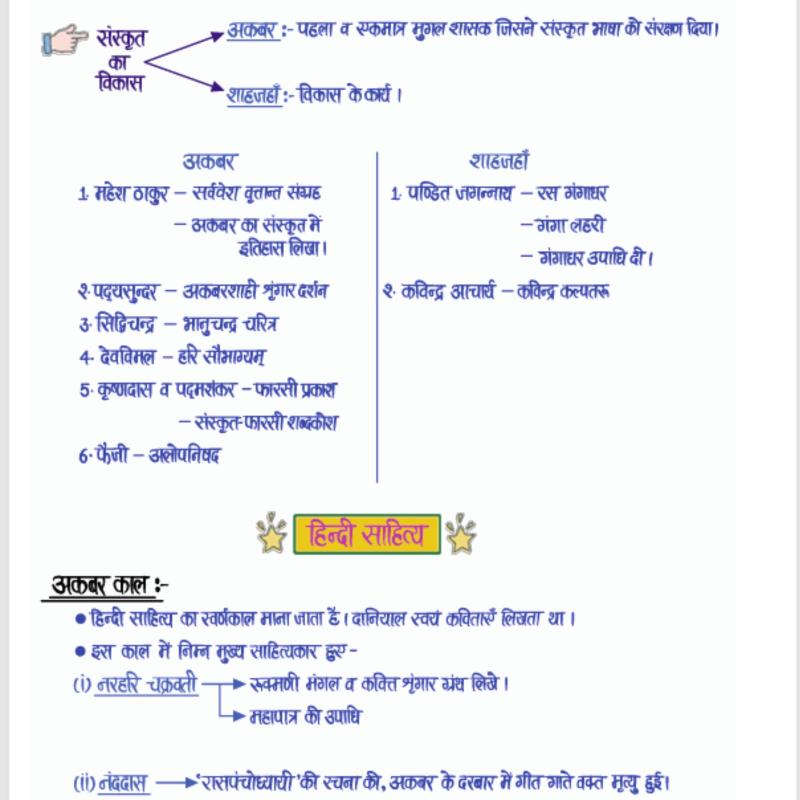 संस्कृत
का
विकास
अकबर :- पहला व एकमात्र मुगल शासक जिसने संस्कृत भाषा को संरक्षण दिया।
शाहजहाँ :- विकास के कार्य ।
अकबर
1. महेश ठाकुर – सर्ववेश वृत्तान्त संग्रह
– अकबर का संस्कृत में
इतिहास लिखा।
२. पद्यसुन्दर – अकबरशाही श्रृंगार दर्शन
3. सिद्विचन्द्र – भानुचन्द्र चरित्र
4. देवविमल – हरि सौभाग्यम्
5. कृष्णदास व पद्मशंकर – फारसी प्रकाश
– संस्कृत-फारसी शब्दकोश
6. फैजी – अलोपनिषद
शाहजहाँ
1. पण्डित जगन्नाथ – रस गंगाधर
– गंगा लहरी
– गंगाधर उपाधि दी।
२. कविन्द्र आचार्य – कविन्द्र कल्पतरू
हिन्दी साहित्य
अकबर काल :-
● हिन्दी साहित्य का स्वर्णकाल माना जाता है। दानियाल स्वयं कविताएँ लिखता था ।
● इस काल में निम्न मुख्य साहित्यकार हुए -
(i) नरहरि चक्रवती → रूक्मणी मंगल व कवित्त श्रृंगार ग्रंथ लिखे ।
→ महापात्र की उपाधि
(ii) नंददास → 'रासपंचोध्यायी' की रचना की, अकबर के दरबार में गीत गाते वक्त मृत्यु हुई।